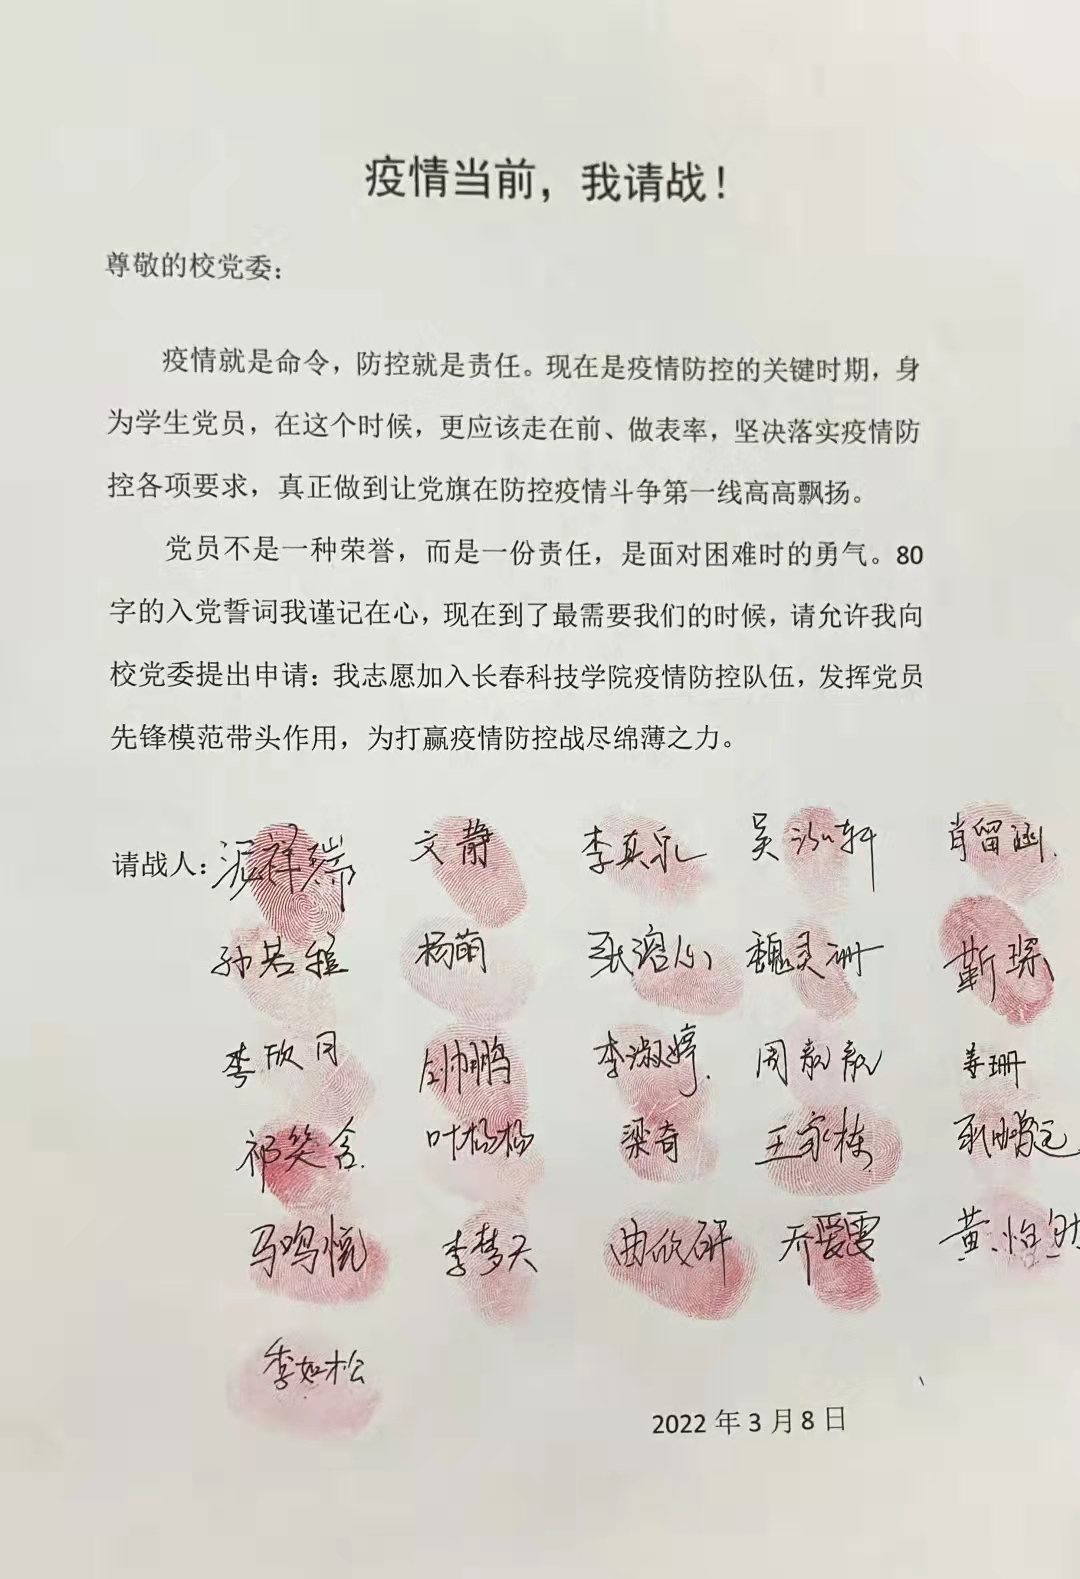 疫情当前，我请战！
尊敬的校党委：
疫情就是命令，防控就是责任。现在是疫情防控的关键时期，身
为学生党员，在这个时候，更应该走在前、做表率，坚决落实疫情防
控各项要求，真正做到让党旗在防控疫情斗争第一线高高飘扬。
党员不是一种荣誉，而是一份责任，是面对困难时的勇气。80
字的入党誓词我谨记在心，现在到了最需要我们的时候，请允许我向
校党委提出申请：我志愿加入长春科技学院疫情防控队伍，发挥党员
先锋模范带头作用，为打赢疫情防控战尽绵薄之力。
请战人： 文静 李真乐 肖留涵
孙若雅 杨萌 魏灵珊 靳琛
李欣月 李淑婷 周毅毅 姜珊
祁笑含 叶杨杨 梁奇 王家栋
马鸣悦 李梦天 曲欣研 乔爱雪 黄怡然
李如松
2022 年 3 月 8 日